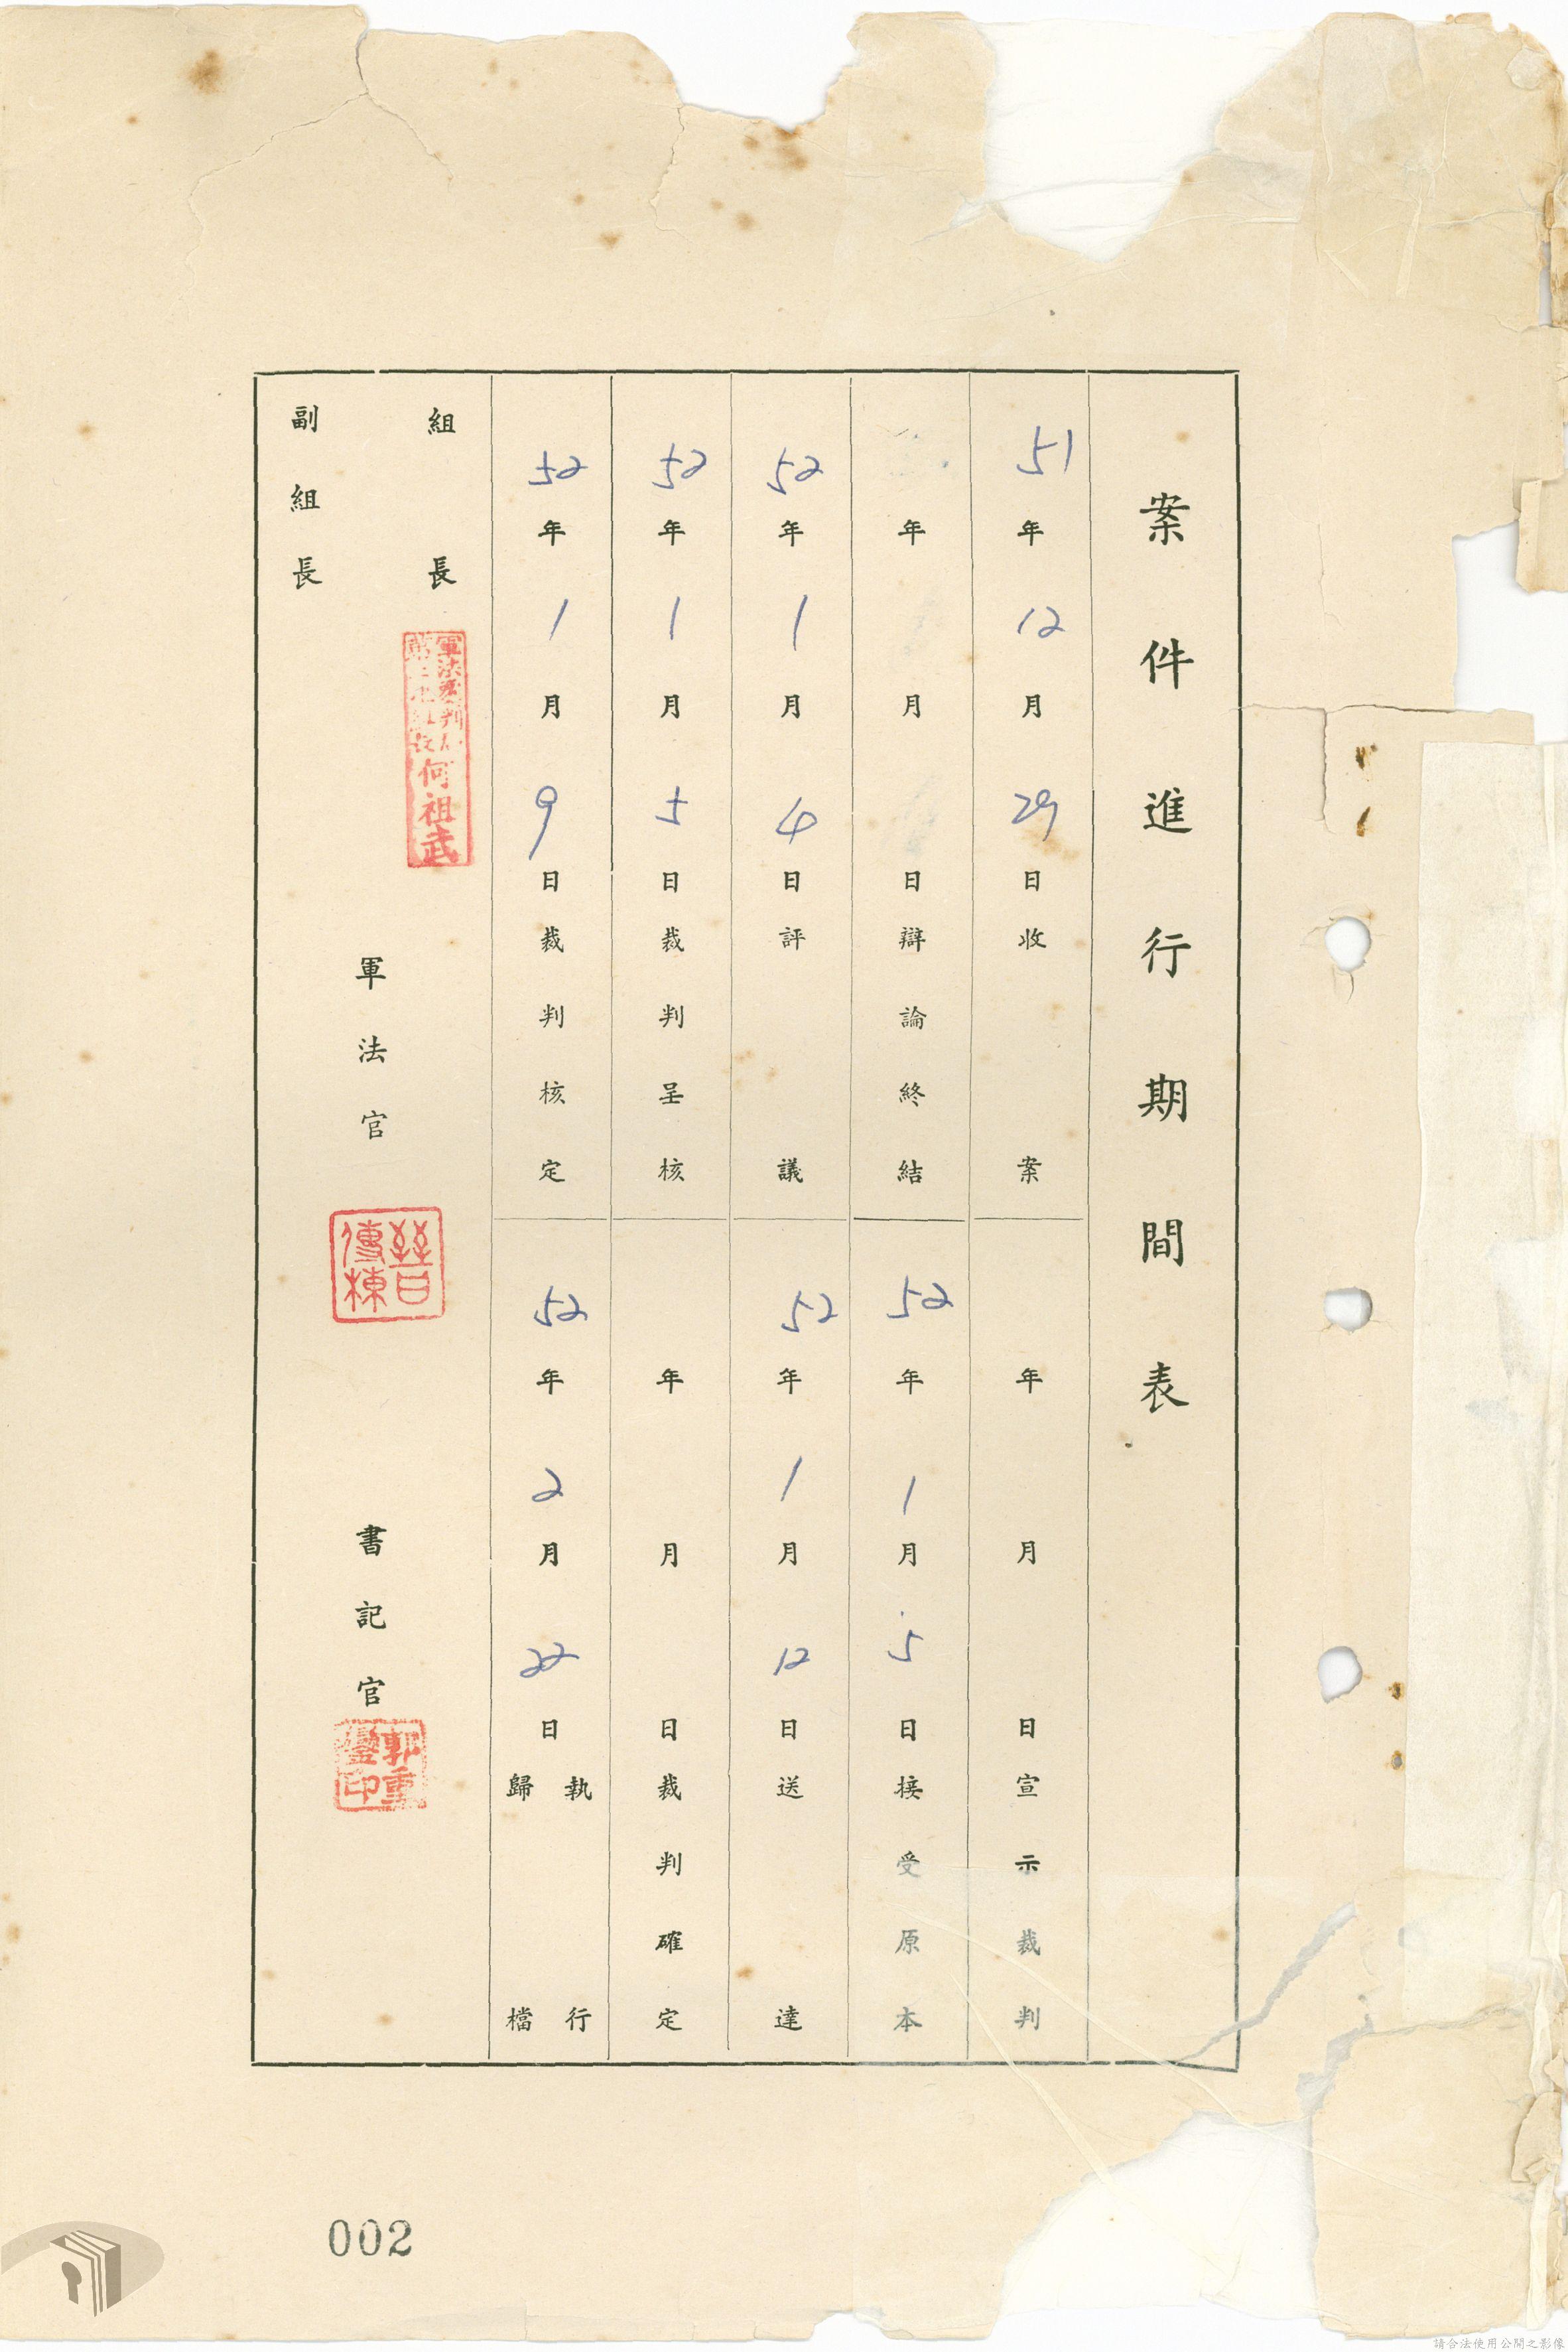 案件進行期間表
51年12月29日收案
年月日宣示裁判
年月日辯論終結
52年1月5日接受原本
52年1月4日評議
52年1月12日送達
52年1月5日裁判呈核
年月日裁判確定
52年1月9日裁判核定
52年2月22日執行歸檔
組長
何祖武
副組長
軍法官
傳棟
書記官
郭重
印
002
請合法使用公開之影像